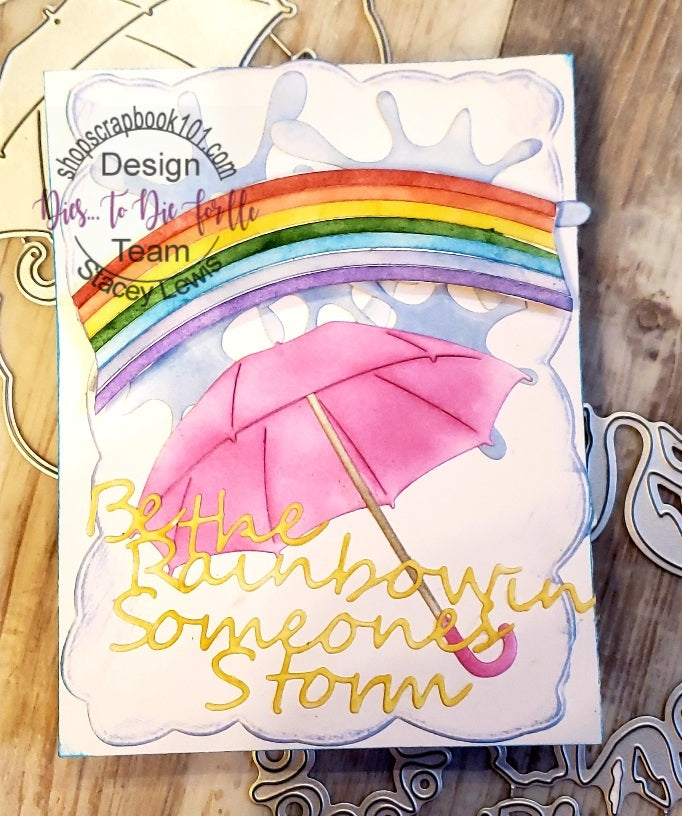 shopscrapbook101.com
Design
Dies... to Die for llc
Team
Stacey Lewis
Be the
Rainbow in
Someones
Storm